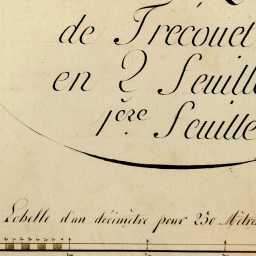 de Trécouet
en 2 Feuille
1ère Feuille
Echelle d'un décimètre pour 250 Mètre